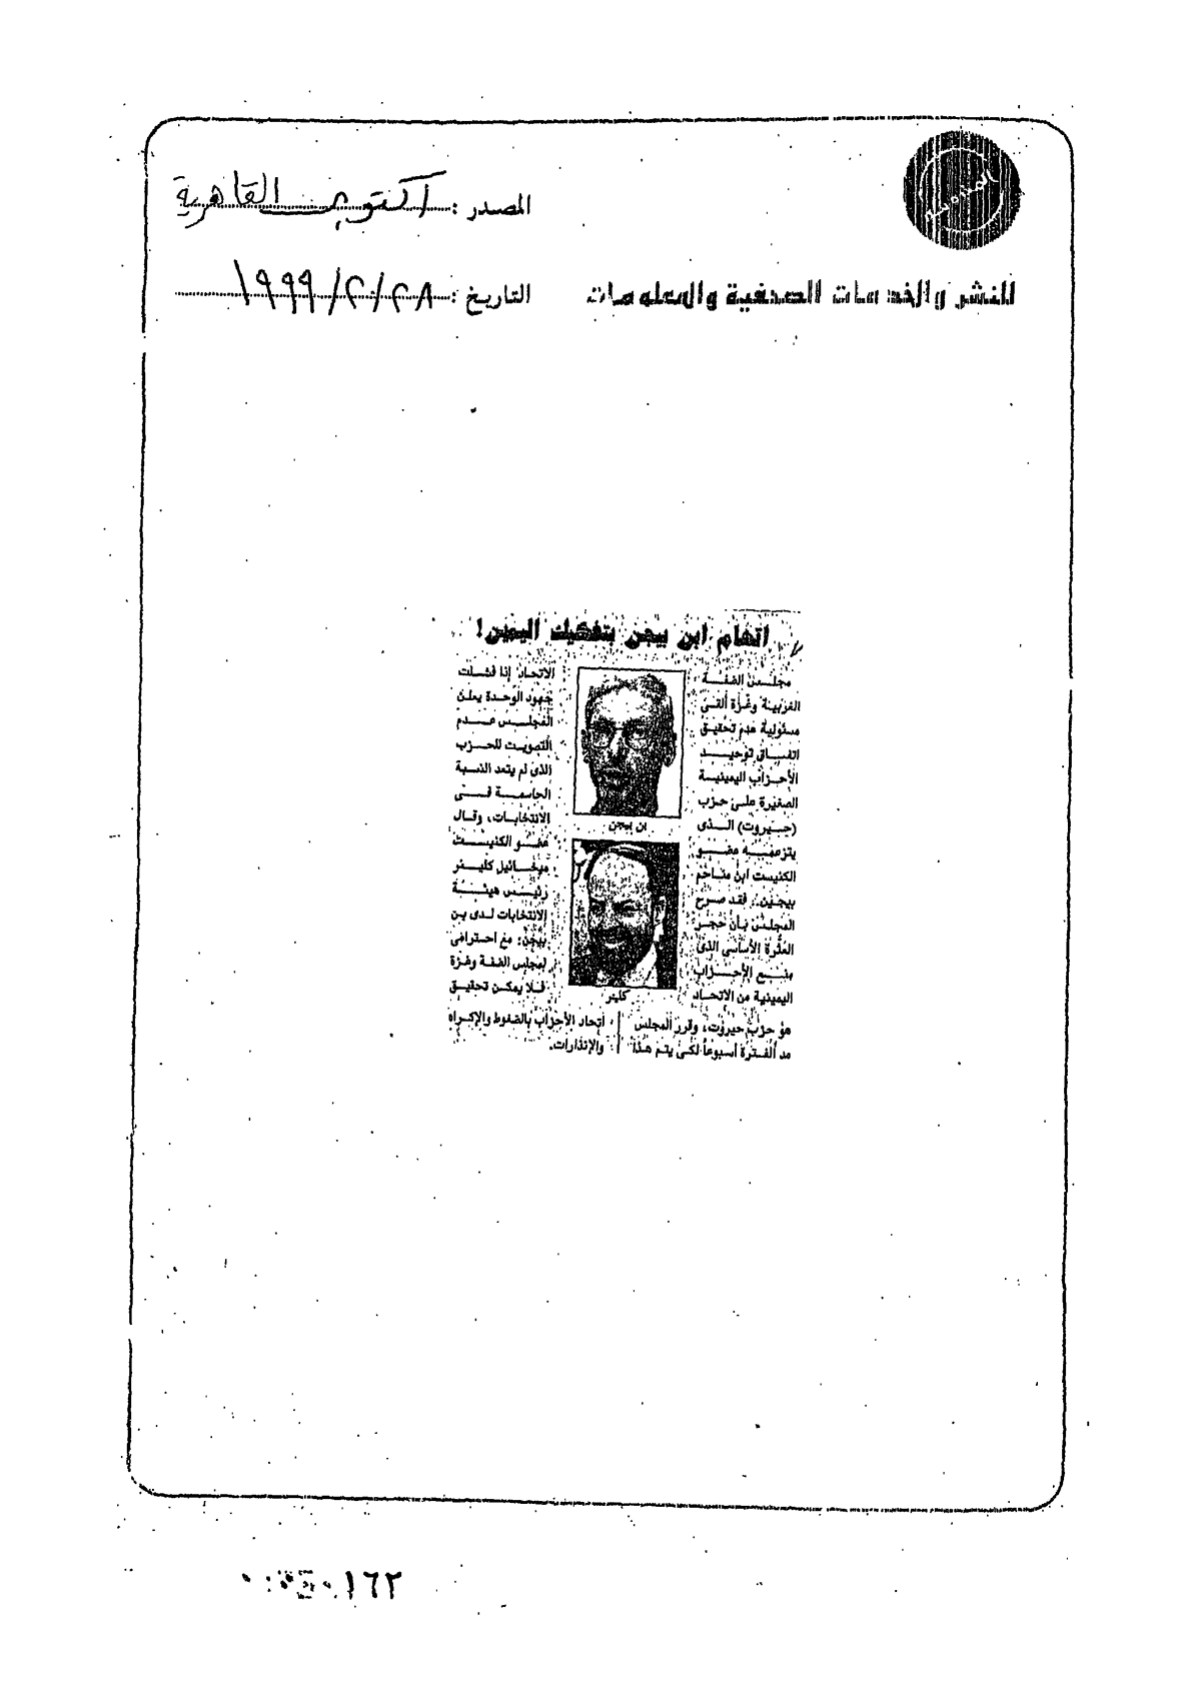 المصدر : اكتوبر القاهرية
للنشر والخدمات الصحفية والمعلومات
التاريخ : ٢٨/٢/١٩٩٩
اتهام ابن بيجن بتفكيك اليمين!
مجلس الضفة
الغربية وغزة ألقى
مسئولية عدم تحقيق
اتفاق توحيد
الأحزاب اليمينية
الصغيرة على حزب
(حيروت) الذى
يتزعمه عضو
الكنيست ابن مناحم
بيجين.. فقد صرح
المجلس بأن حجر
العثرة الأساسى الذى
منع الأحزاب
اليمينية من الاتحاد
هو حزب حيروت، وقرر المجلس
مد الفترة أسبوعاً لكى يتم هذا
الاتحاد إذا فشلت
جهود الوحدة يعلن
المجلس عدم
التصويت للحزب
الذى لم يتعد النسبة
الحاسمة فى
الانتخابات، وقال
عضو الكنيست
ميخائيل كلينر
رئيس هيئة
الانتخابات لدى بن
بيجن: مع احترامى
لمجلس الضفة وغزة
فلا يمكن تحقيق
اتحاد الأحزاب بالضغوط والإكراه
والإنذارات.
بن بيجن
كلينر
١٦٢